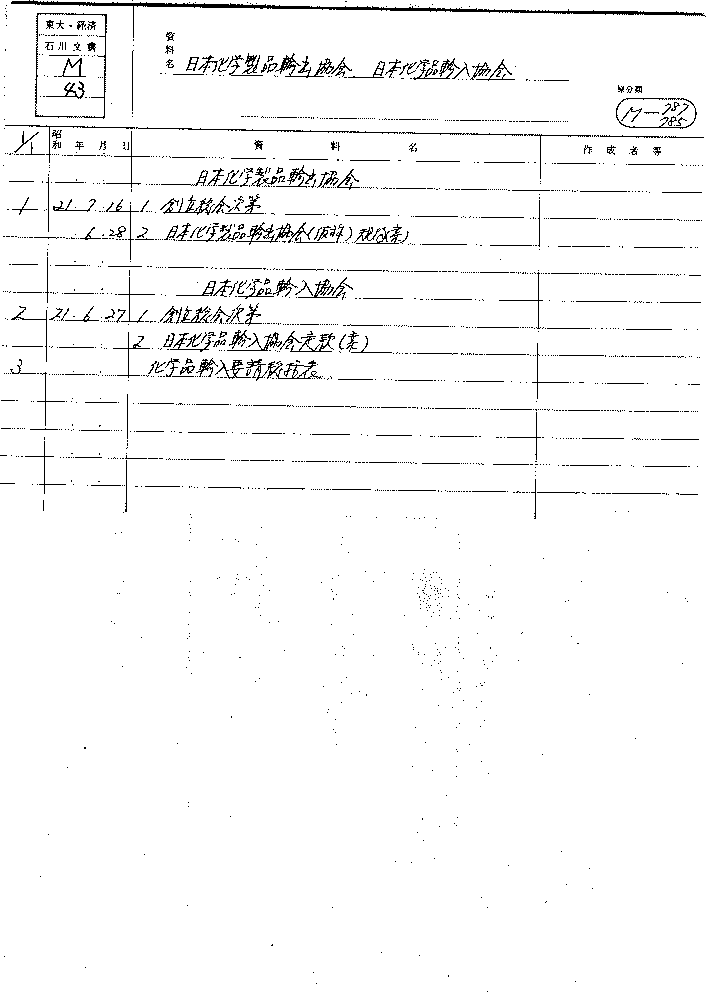 東大・経済
石川文書
M
83
資料名 日本化学製品輸出協会 日本化学品輸入協会
原分類
M-787
785
1/1 昭和 年 月 日 資料名 作成者等
日本化学製品輸出協会
1 21 7 16 1 創立総会次第
6 28 2 日本化学製品輸出協会(仮称)規約(案)
日本化学品輸入協会
2 21 6 27 1 創立総会次第
2 日本化学品輸入協会定款(案)
3 化学品輸入要請総括表